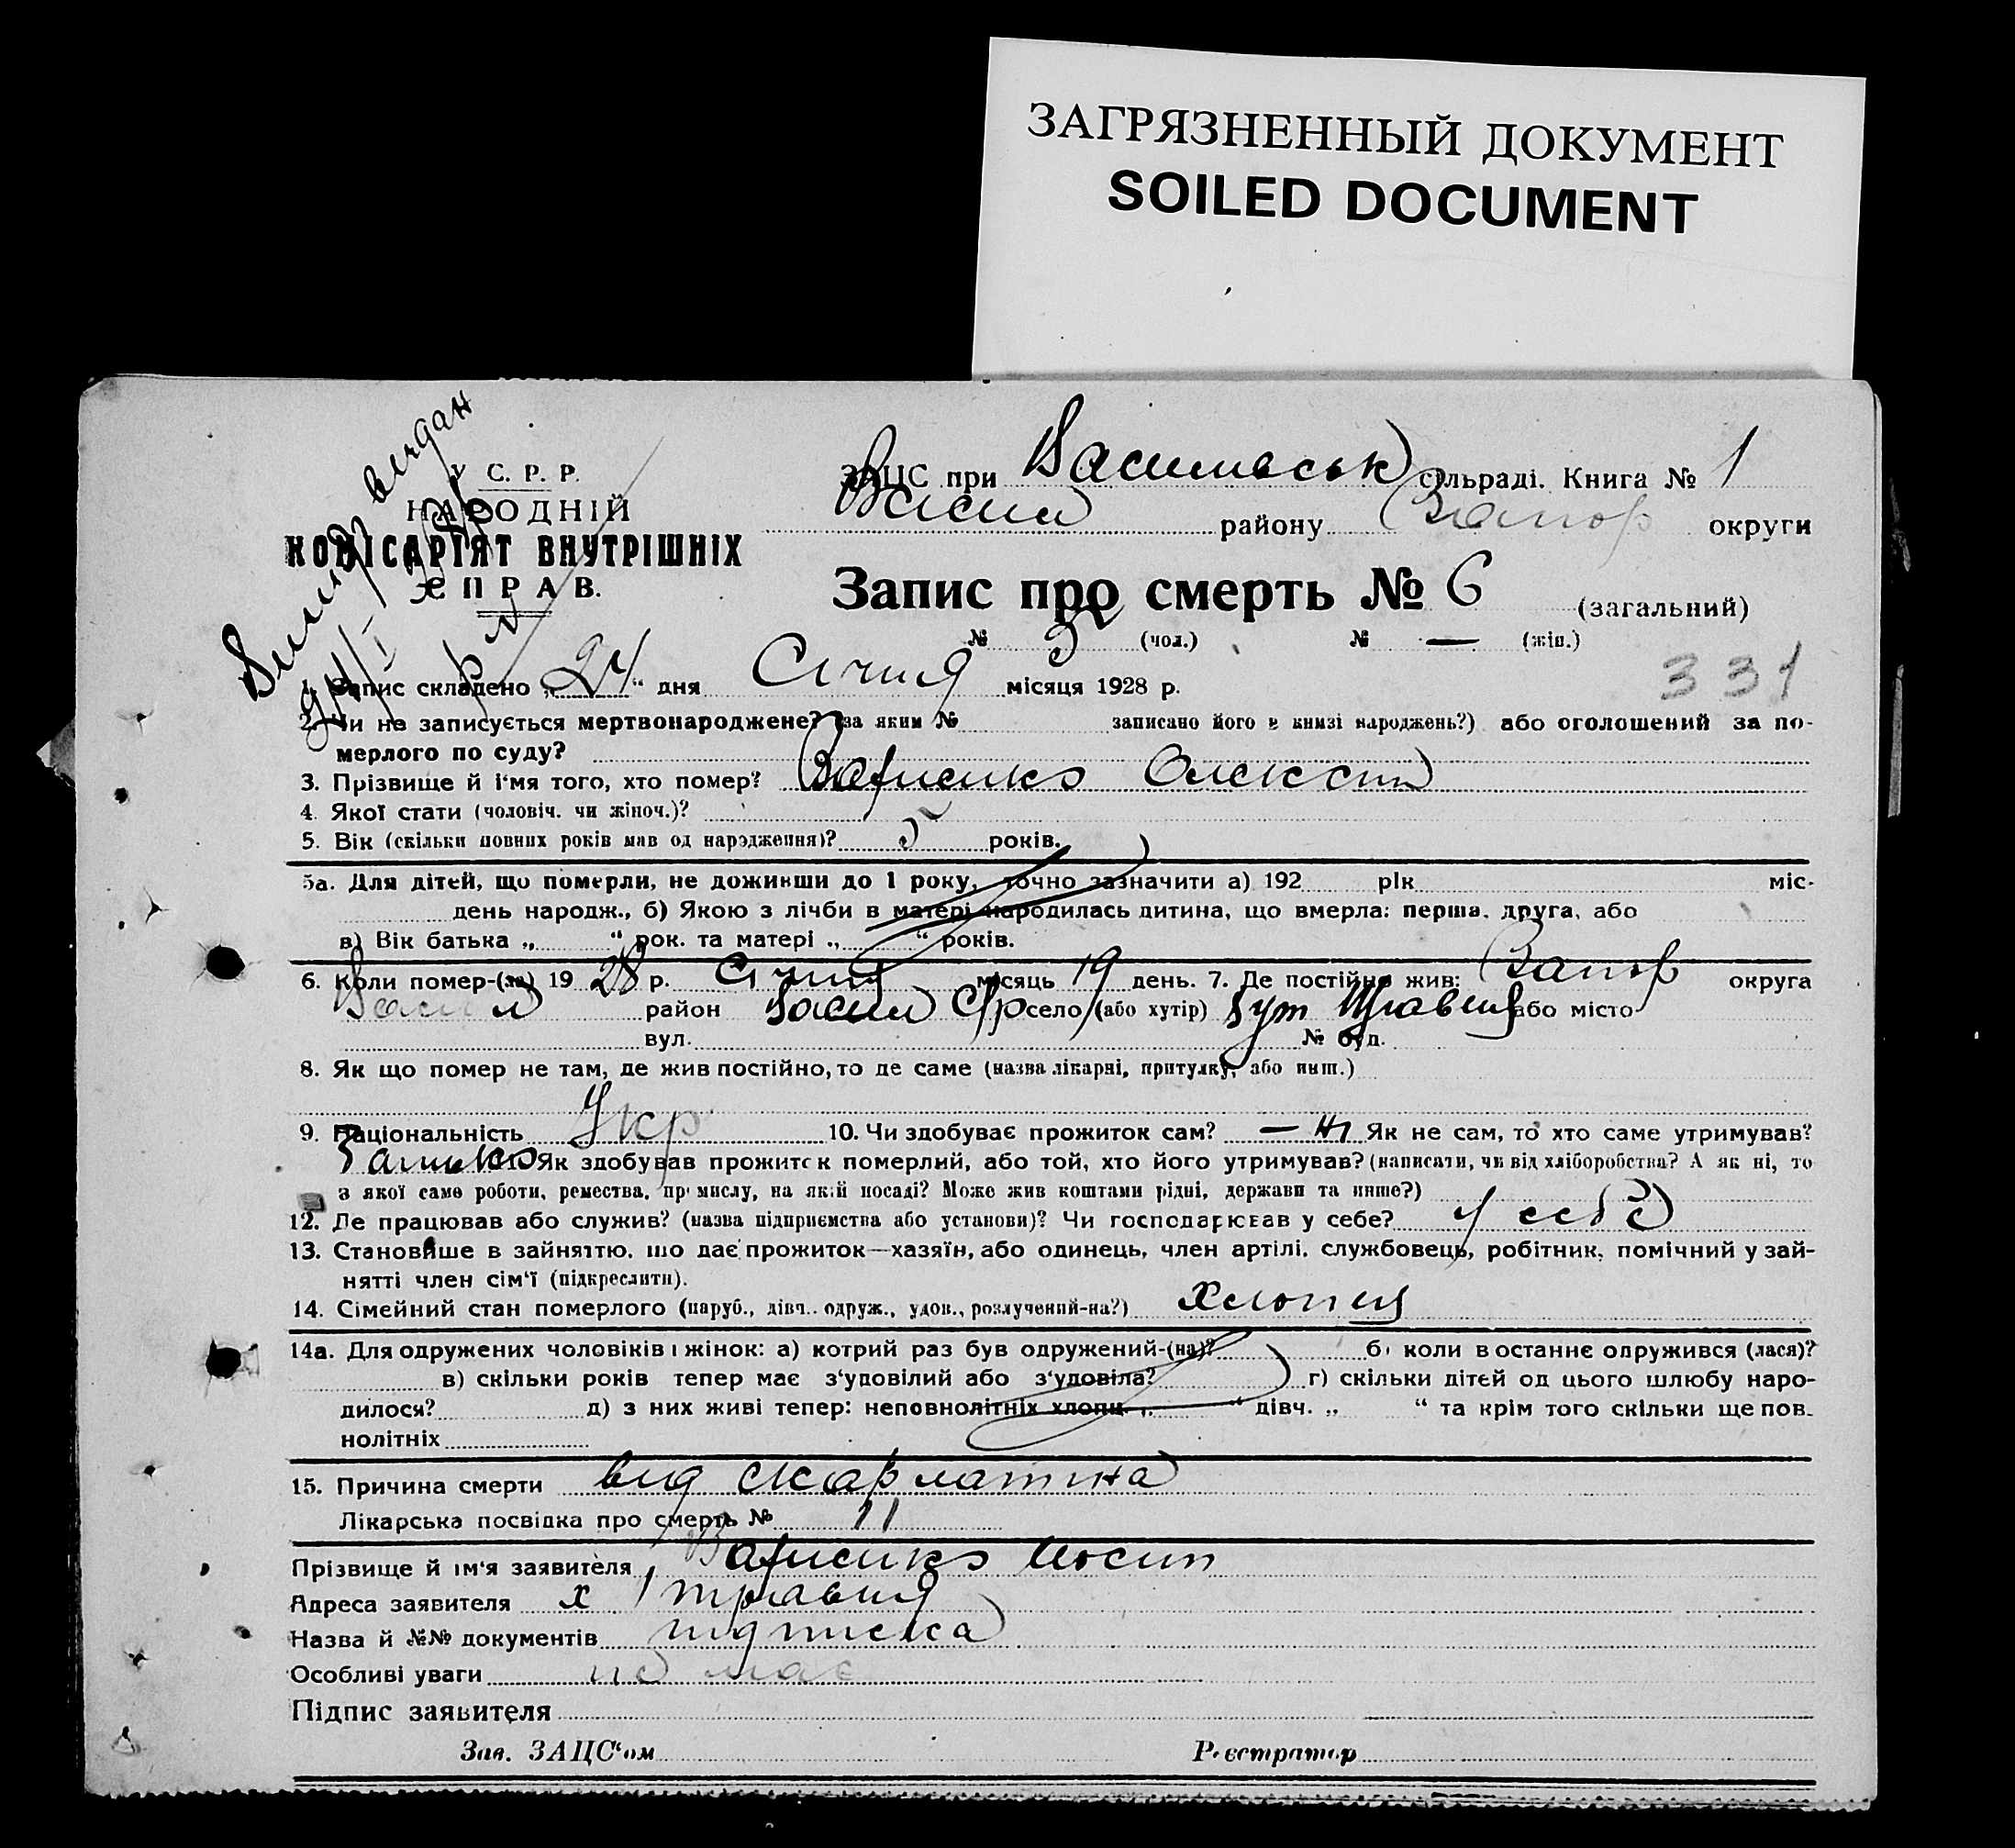 ЗАГРЯЗНЕННЫЙ ДОКУМЕНТ
SOILED DOCUMENT
видан
У С. Р. Р.
НАРОДНІЙ
КОМІСАРІЯТ ВНУТРІШНІХ
СПРАВ.
ЗАЦС при Василівськ сільраді. Книга № 1
Васил району Запор округи
Запис про смерть № 6 (загальний)
№ 5 (чол.) № — (жін.)
331
1. Запис складено „24“ дня Січня місяця 1928 р.
2. Чи не записується мертвонароджене? (за яким № записано його в книзі народжень?) або оголошений за по-
мерлого по суду?
3. Прізвище й ім'я того, хто помер? Олексій
4. Якої стати (чоловіч. чи жіноч.)?
5. Вік (скільки повних років мав од народження)? 5 років.
5а. Для дітей, що померли, не доживши до 1 року, точно зазначити а) 192 рік міс.
день народж., б) Якою з лічби в матері народилась дитина, що вмерла: перша, друга, або
в) Вік батька „ “ рок. та матері „ “ років.
6. Коли помер-(ла) 1928 р. Січня місяць 19 день. 7. Де постійно жив: Запор округа
Васил район Васил С/р село (або хутір) хут 1 Травня або місто
вул. № буд.
8. Як що помер не там, де жив постійно, то де саме (назва лікарні, притулку, або инш.)
9. Національність Укр 10. Чи здобуває прожиток сам? — Ні Як не сам, то хто саме утримував?
Батько 11. Як здобував прожиток померлий, або той, хто його утримував? (написати, чи від хліборобства? А як ні, то
з якої саме роботи, ремества, промислу, на якій посаді? Може жив коштами рідні, держави та инше?)
12. Де працював або служив? (назва підприємства або установи)? Чи господарював у себе? у себе
13. Становище в зайняттю, що дає прожиток—хазяїн, або одинець, член артілі, службовець, робітник, помічний у зай-
нятті член сім'ї (підкреслити).
14. Сімейний стан померлого (паруб., дівч.. одруж., удов., розлучений-на?) хлопець
14а. Для одружених чоловіків і жінок: а) котрий раз був одружений-(на)? б) коли востаннє одружився (лася)?
в) скільки років тепер має з'удовілий або з'удовіла? г) скільки дітей од цього шлюбу наро-
дилося? д) з них живі тепер: неповнолітніх хлопц. „ “ дівч. „ “ та крім того скільки ще пов.
нолітніх
15. Причина смерти від скарлатина
Лікарська посвідка про смерть № 11
Прізвище й ім'я заявителя Йосип
Адреса заявителя х 1 травня
Назва й №№ документів підписка
Особливі уваги не має
Підпис заявителя
Зав. ЗАЦС'ом Реєстратор